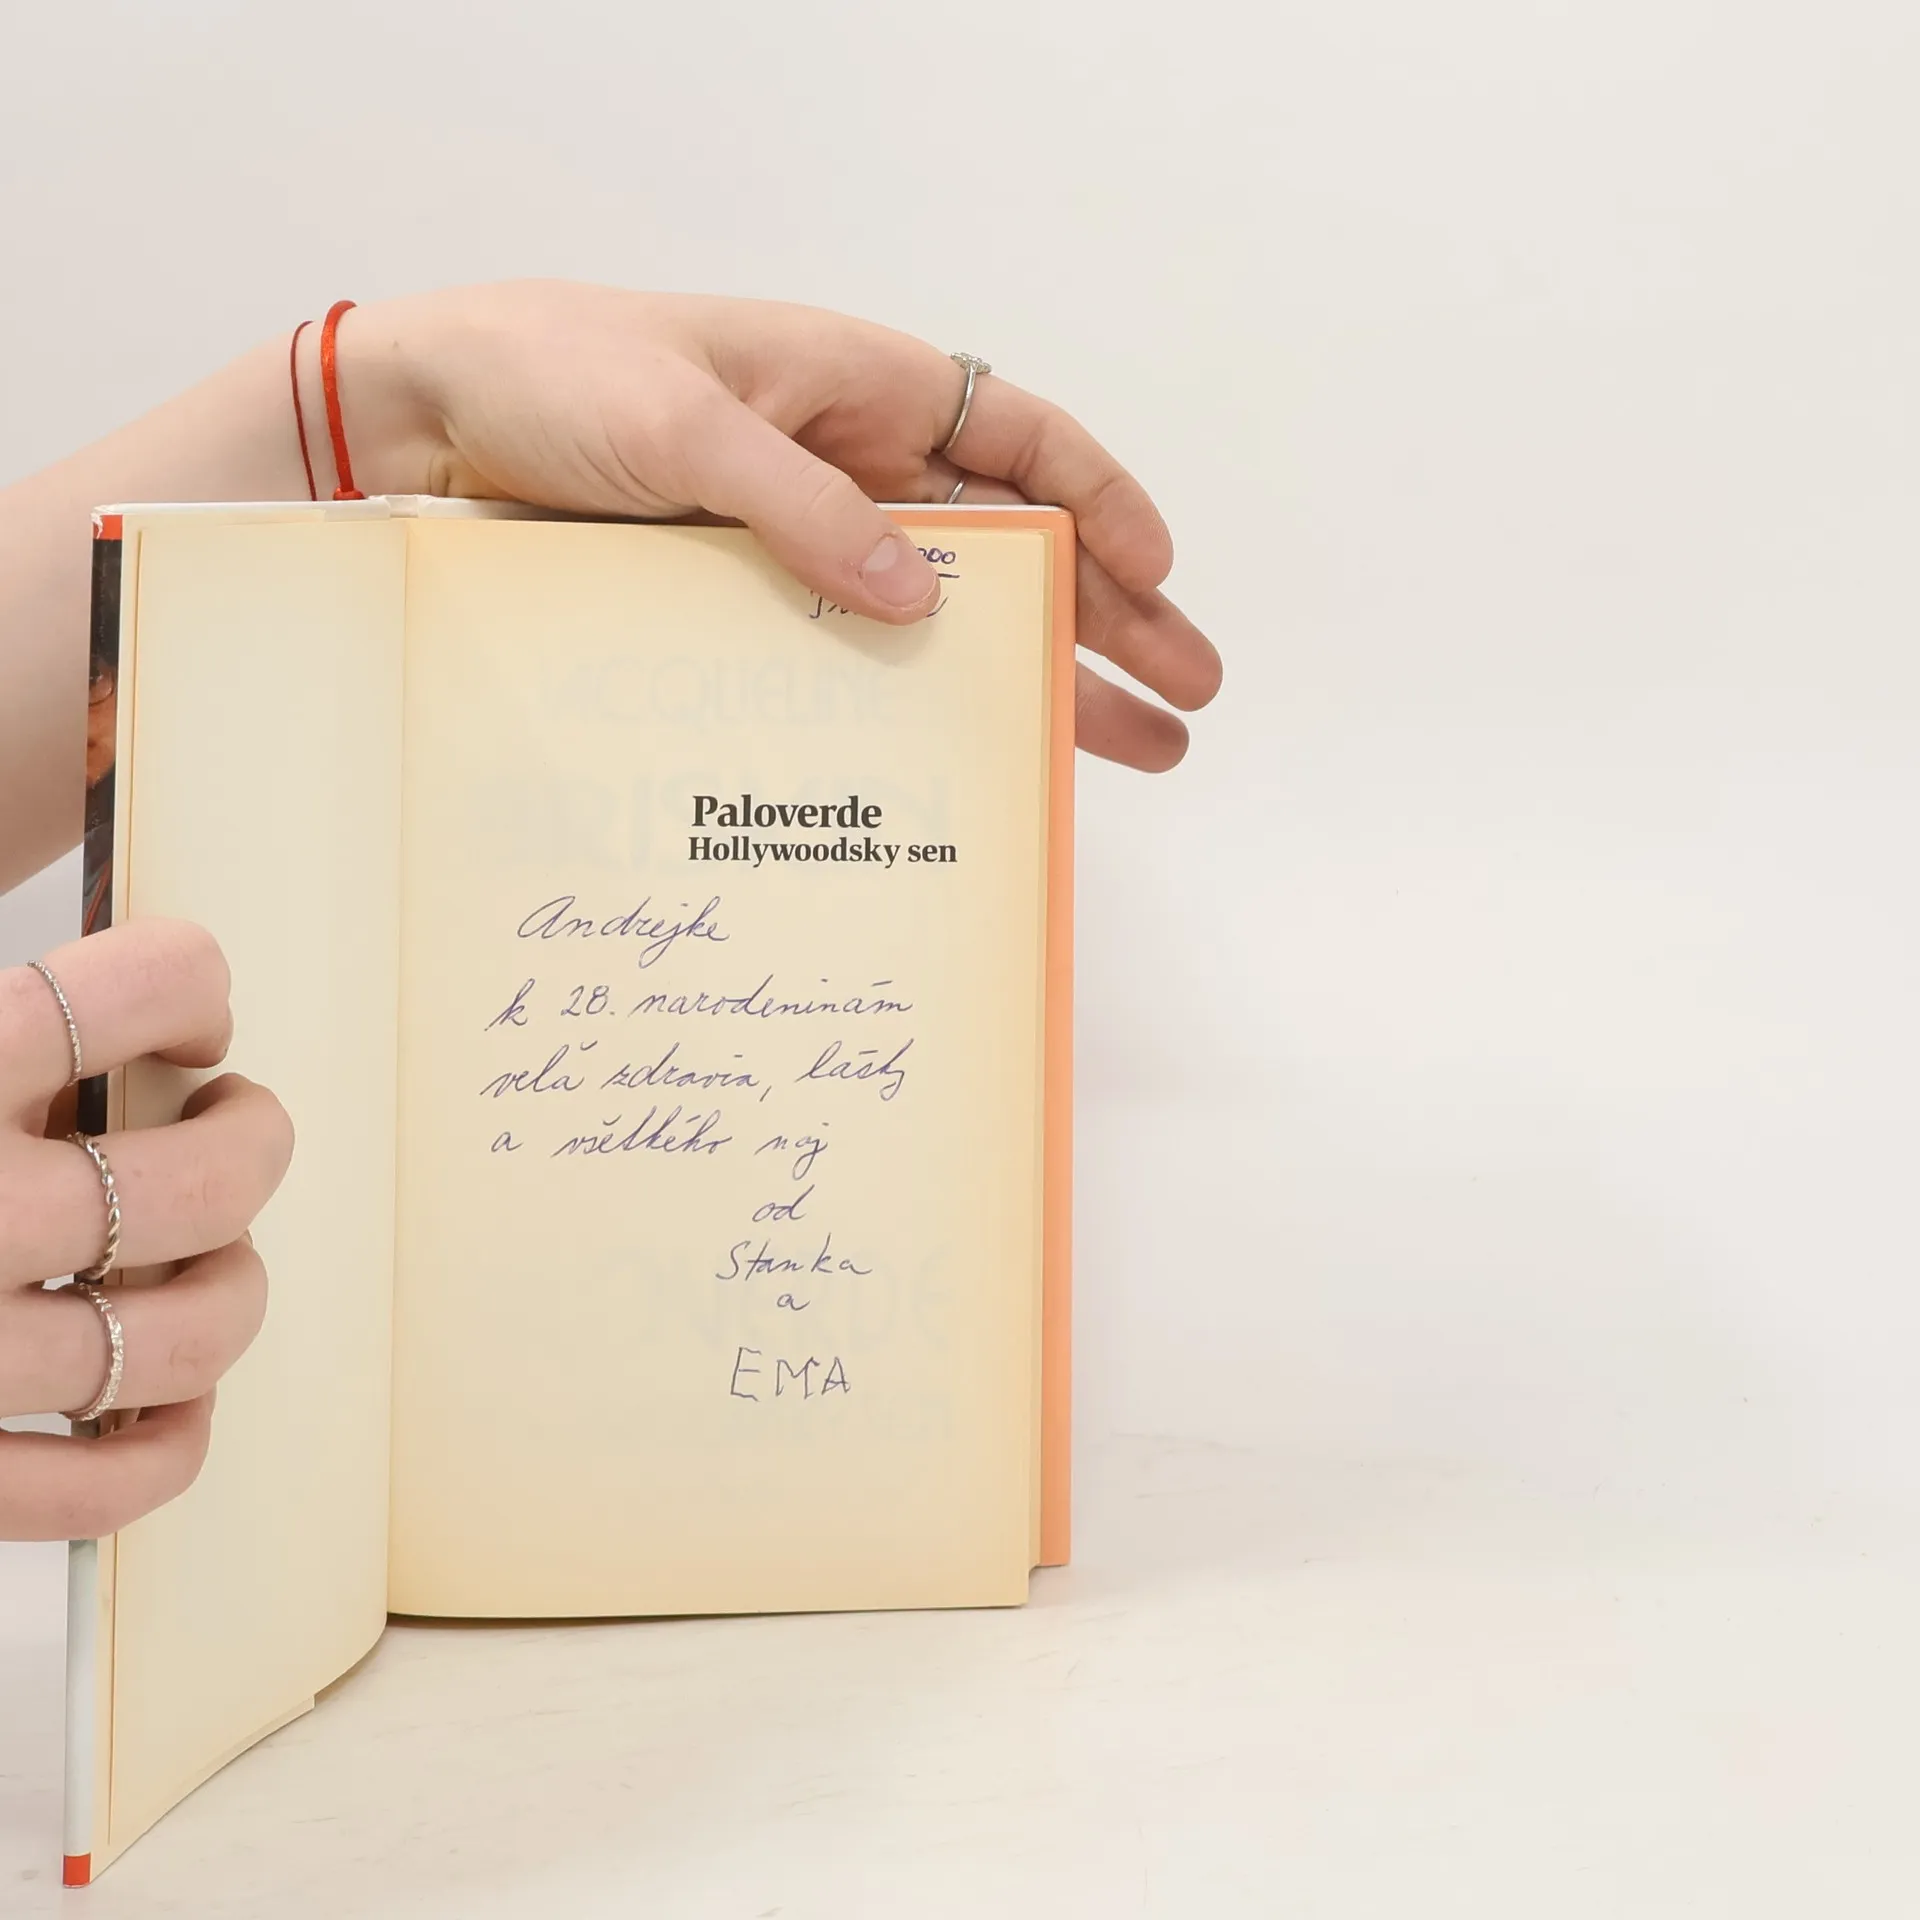 000
Paloverde
Hollywoodsky sen
Andrejke
k 28. narodeninám
veľa zdravia, lásky
a všetkého naj
od
Stanka
a
EMA